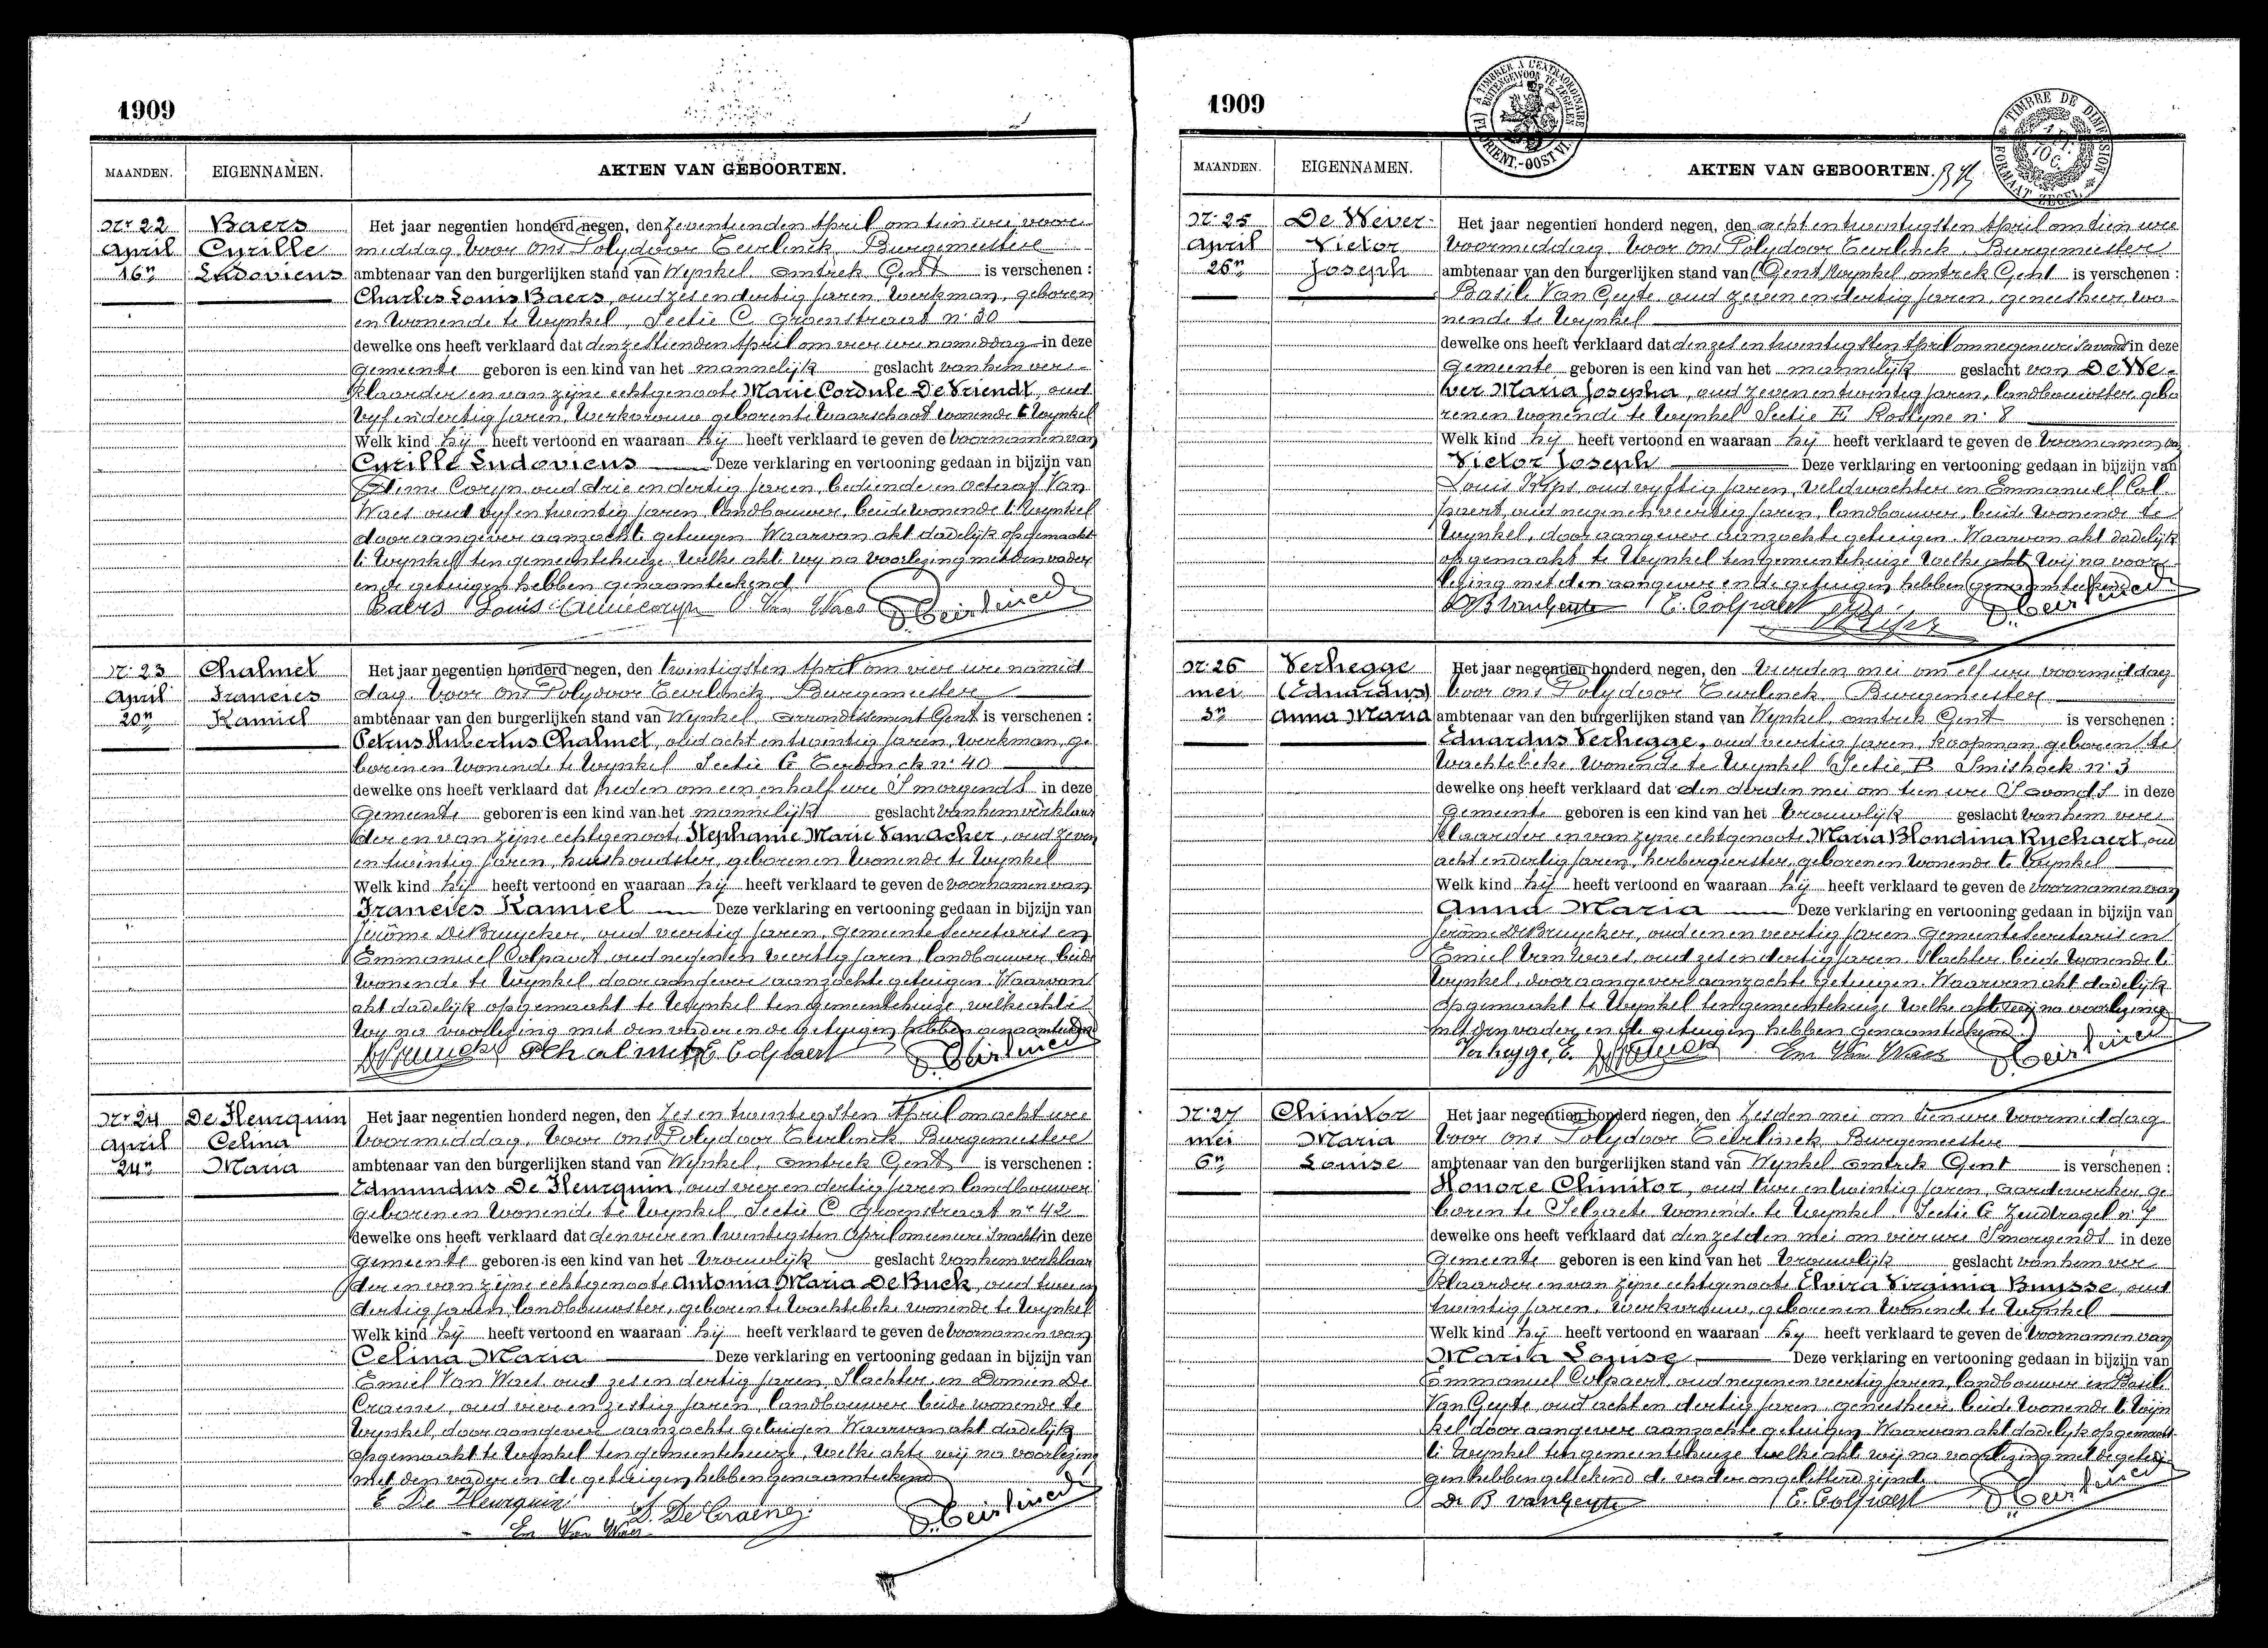 1909
MAANDEN. EIGENNAMEN. AKTEN VAN GEBOORTEN.
Nr 22 Baers Het jaar negentien honderd negen, den zeventienden April om tien ure voor-
April Cyrille middag voor ons Polydoor Eeirlinck, Burgemeester
16n Ludovicus ambtenaar van den burgerlijken stand van Wynkel omtrek Gent is verschenen :
Charles Louis Baers, oud zes en dertig jaren, werkman, geboren
en wonende te Wynkel, Sectie C Groenstraat n: 30
dewelke ons heeft verklaard dat den zestienden April om vier ure namiddag in deze
Gemeente geboren is een kind van het mannelijk geslacht van hem ver-
klaarder en van zijne echtgenoote Marie Cordule De Vriendt, oud
vyf en dertig jaren, werkvrouw geboren te Waarschoot wonende te Wynkel
Welk kind hij heeft vertoond en waaraan hij heeft verklaard te geven de voornamen van
Cyrille Ludovicus Deze verklaring en vertooning gedaan in bijzijn van
Coryn oud drie en dertig jaren, bediende en Octeraf Van
Waes oud vyf en twintig jaren, landbouwer, beide wonende te Wynkel
door aangever aanzochte getuigen. Waarvan akt dadelijk opgemaakt
te Wynkel ten gemeentehuize welke akt wij na voorlezing met den vader
en de getuigen hebben genaamteekend.
Baers Louis O. Van Waes P. Eeirlinck
Nr 23 Chalmet Het jaar negentien honderd negen, den twintigsten April om vier ure namid
April Francies dag voor ons Polydoor Eeirlinck, Burgemeester
20n Kamiel ambtenaar van den burgerlijken stand van Wynkel, Arrondissement Gent is verschenen :
Petrus Hubertus Chalmet, oud acht en twintig jaren, werkman, ge
boren en wonende te Wynkel Sectie G Eerdonck n: 40
dewelke ons heeft verklaard dat heden om een en half ure 's morgends in deze
Gemeente geboren is een kind van het mannelijk geslacht van hem verklaar
der en van zijne echtgenoote Stephanie Marie Van Acker, oud zeven
en twintig jaren, huishoudster, geboren en wonende te Wynkel
Welk kind hij heeft vertoond en waaraan hij heeft verklaard te geven de voornamen van
Francies Kamiel Deze verklaring en vertooning gedaan in bijzijn van
Jérôme De Bruycker, oud veertig jaren, Gemeente Secretaris en
Emmanuel Colpaert, oud negen en veertig jaren, landbouwer, beide
wonende te Wynkel, door aangever aanzochte getuigen. Waarvan
akt dadelijk opgemaakt te Wynkel ten gemeentehuize, welke akte
wy na voorlezing met den vader en de getuigen hebben genaamteekend
P H Chalmet E Colpaert P. Eeirlinck
Nr 24 De Heurquin Het jaar negentien honderd negen, den zes en twintigsten April om acht ure
April Celina voormiddag, voor ons Polydoor Eeirlinck Burgemeester
24n Maria ambtenaar van den burgerlijken stand van Wynkel, omtrek Gent is verschenen :
Edmundus De Heurquin, oud vier en dertig jaren landbouwer
geboren en wonende te Wynkel, Sectie C Groenstraat nr 42
dewelke ons heeft verklaard dat den vier en twintigsten April om een ure 's nachts in deze
Gemeente geboren is een kind van het vrouwlijk geslacht van hem verklaar
der en van zijne echtgenoote Antonia Maria De Buck, oud twee en
dertig jaren, landbouwster, geboren te Wachtebeke wonende te Wynkel
Welk kind hij heeft vertoond en waaraan hij heeft verklaard te geven de voornamen van
Celina Maria Deze verklaring en vertooning gedaan in bijzijn van
Emiel Van Waes oud zes en dertig jaren, slachter, en Domien De
Craene, oud vier en zestig jaren, landbouwer beide wonende te
Wynkel, door aangever aanzochte getuigen Waarvan akt dadelijk
opgemaakt te Wynkel ten gemeentehuize, welke akte wij na voorlezing
met den vader en de getuigen hebben genaamteekend
E De Heurquin D. De Craene
Em Van Waes P. Eeirlinck
1909
A TIMBRER A L'EXTRAORDINAIRE
BUITENGEWOON TE ZEGELEN
TIMBRE DE DIMENSION
FORMAAT ZEGEL
MAANDEN. EIGENNAMEN. AKTEN VAN GEBOORTEN.
Nr 25 De Wever Het jaar negentien honderd negen, den acht en twintigsten April om tien ure
April Victor voormiddag voor ons Polydoor Eeirlinck, Burgemeester
26n Joseph ambtenaar van den burgerlijken stand van (Gent) Wynkel omtrek Gent is verschenen :
Basile Van Geyte oud zeven en dertig jaren, geneesheer, wo-
nende te Wynkel
dewelke ons heeft verklaard dat den zes en twintigsten April om negen ure 's avonds in deze
Gemeente geboren is een kind van het mannelijk geslacht van De We-
ver Maria Josepha, oud zeven en twintig jaren, landbouwster, gebo
ren en wonende te Wynkel Sectie E Rostyne n: 8
Welk kind hij heeft vertoond en waaraan hij heeft verklaard te geven de voornamen van
Victor Joseph Deze verklaring en vertooning gedaan in bijzijn van
Louis oud vyftig jaren, veldwachter en Emmanuel Col
paert, oud negen en veertig jaren, landbouwer, beide wonende te
Wynkel, door aangever aanzochte getuigen. Waarvan akt dadelijk
opgemaakt te Wynkel ten gemeentehuize welke akt wij na voor-
lezing met den aangever en de getuigen hebben genaamteekend
Dr B Van Geyte E. Colpaert P. Eeirlinck
Nr 26 Verhegge Het jaar negentien honderd negen, den vierden mei om elf ure voormiddag
mei (Eduardus) voor ons Polydoor Eeirlinck, Burgemeester
3n Anna Maria ambtenaar van den burgerlijken stand van Wynkel, omtrek Gent is verschenen :
Eduardus Verhegge, oud veertig jaren, koopman, geboren te
Wachtebeke, wonende te Wynkel Sectie B Smishoek n: 3
dewelke ons heeft verklaard dat den derden mei om tien ure 's avonds in deze
Gemeente geboren is een kind van het vrouwlijk geslacht van hem ver
klaarder en van zijne echtgenoote Maria Blondina Rychaert, oud
acht en dertig jaren, herbergierster, geboren en wonende te Wynkel
Welk kind hij heeft vertoond en waaraan hij heeft verklaard te geven de voornamen van
Anna Maria Deze verklaring en vertooning gedaan in bijzijn van
Jérôme De Bruycker, oud een en veertig jaren Gemeente Secretaris en
Emiel Van Waes, oud zes en dertig jaren. Slachter beide wonende te
Wynkel, door aangever aanzochte getuigen. Waarvan akt dadelijk
opgemaakt te Wynkel ten gemeentehuize welke akt wij na voorlezing
met den vader en de getuigen hebben genaamteekend
Verhegge, E. Em Van Waes P. Eeirlinck
Nr 27 Chinitor Het jaar negentien honderd negen, den zesden mei om tien ure voormiddag
mei Maria voor ons Polydoor Eeirlinck, Burgemeester
6n Louise ambtenaar van den burgerlijken stand van Wynkel omtrek Gent is verschenen :
Honore Chinitor, oud twee en twintig jaren, aardewerker, ge
boren te Selzaete wonende te Wynkel Sectie G Zandtragel n: 7
dewelke ons heeft verklaard dat den zesden mei om vier ure 's morgends in deze
Gemeente geboren is een kind van het vrouwlijk geslacht van hem ver
klaarder en van zijne echtgenoote Elvira Virginia Buysse, oud
twintig jaren, werkvrouw, geboren en wonende te Wynkel
Welk kind hij heeft vertoond en waaraan hy heeft verklaard te geven de voornamen van
Maria Louise Deze verklaring en vertooning gedaan in bijzijn van
Emmanuel Colpaert oud negen en veertig jaren, landbouwer en Basile
Van Geyte, oud acht en dertig jaren, geneesheer, beide wonende te Wyn
kel door aangever aanzochte getuigen. Waarvan akt dadelijk opgemaakt
te Wynkel ten gemeentehuize welke akt wij na voorlezing met de getui
gen hebben geteekend de vader ongeletterd zijnde.
Dr B Van Geyte E. Colpaert P. Eeirlinck